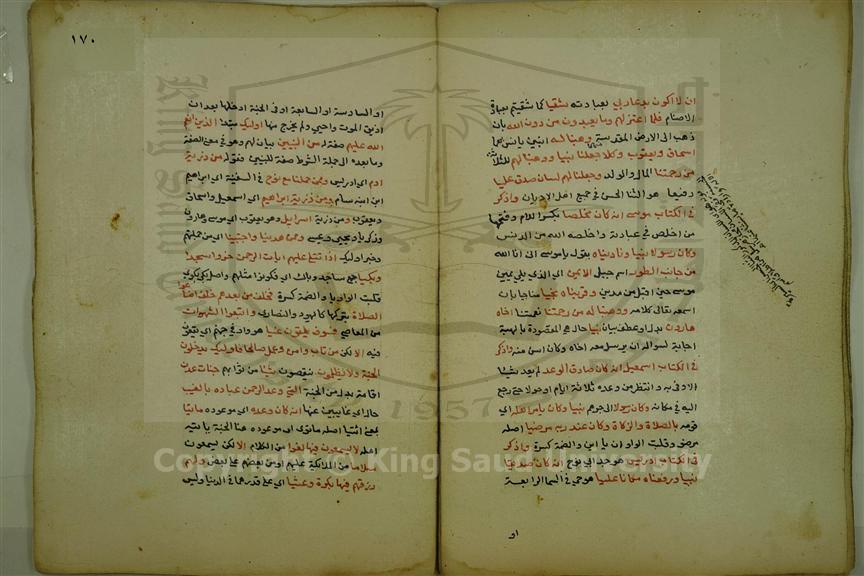 ان لا اكون بدعا ربي بعبادته شقيا كما شقيتم بعبادة
الاصنام فلما اعتزلهم وما يعبدون من دون الله بان
ذهب الى الارض المقدسة وهبنا له ابنين يانس بهما
اسحاق ويعقوب وكلا جعلنا نبيا ووهبنا لهم للثلاثة
من رحمتنا المال والولد وجعلنا لهم لسان صدق عليا
رفيعا هو الثنا الحسن في جميع اهل الاديان واذكر
في الكتاب موسى انه كان مخلصا بكسر اللام وفتحها
من اخلص في عبادته واخلصه الله من الدنس
وكان رسولا نبيا وناديناه بقول ياموسى انى انا الله
من جانب الطور اسم جبل الايمن اي الذي يلي يمين
موسى حين اقبل من مدين وقربناه نجيا مناجيا بان
اسمعه تعالى كلامه ووهبنا له من رحمتنا نعمتنا اخاه
هارون بدل او عطف بيان نبيا حال هي المقصودة بالهبة
اجابة لسواله ان يرسل معه اخاه وكان اسن منه واذكر
في الكتاب اسمعيل انه كان صادق الوعد لم يعد بشيا
الا وفى به وانتظر من وعده ثلاثة ايام او حولا حتى رجع
اليه في مكانه وكان رسولا الى جرهم نبيا وكان يامر اهله اي
قومه بالصلاة والزكاة وكان عند ربه مرضيا اصله
مرضوو قلبت الواوان يا اين والضمة كسرة واذكر
في الكتاب ادريس هو جد ابي نوح انه كان صديقا
نبيا ورفعناه مكانا عليا هو حي في السما الرابعة
او
١٧٠
او السادسة او السابعة او في الجنة ادخلها بعد ان
اذيق الموت واحيي ولم يخرج منها اوليك مبتدا الذين انعم
الله عليهم صفة له من النبيين بيان لهم وهو في معنى الصفة
وما بعده الى جملة الشرط صفة للنبيين فقوله من ذرية
ادم اي ادريس وممن حملنا مع نوح في السفينة اي ابراهيم
ابن ابنه سام ومن ذرية ابراهيم اي اسمعيل واسحاق
ويعقوب ومن ذرية اسرائيل وهو يعقوب اي موسى وهارون
وزكريا ويحيى وعيسى وممن هدينا واجتبينا اي من جملتهم
وخبر اوليك اذا تتلى عليهم ايات الرحمن خروا سجدا
وبكيا جمع ساجد وباك اي فكونوا مثلهم واصل بكي بكوي
قلبت الواو يا والضمة كسرة فخلف من بعدهم خلف اضاعوا
الصلاة بتركها كاليهود والنصارى واتبعوا الشهوات
من المعاصي فسوف يلقون غيا هو واد في جهنم اي يقعون
فيه الا لكن من تاب وامن وعمل صالحا فاوليك يدخلون
الجنة ولا يظلمون ينقصون شيا من ثوابهم جنات عدن
اقامة بدل من الجنة التي وعد الرحمن عباده بالغيب
حال اي غايبين عنها انه كان وعده اي موعوده ماتيا
بمعنى اتيا اصله ماتوي او موعوده هنا الجنة ياتيه
اهله لا يسمعون فيها لغوا من الكلام الا لكن يسمعون
سلاما من الملايكة عليهم او من بعضهم على بعض ولهم
رزقهم فيها بكرة وعشيا اي على قدرهما في الدنيا وليس
Copyright © King Saud University
1957